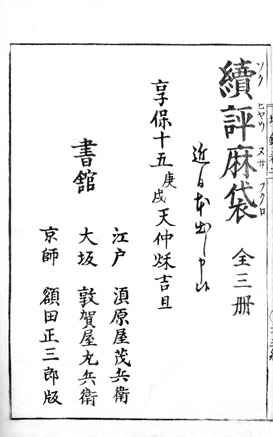 續評麻袋 全三冊
ゾク
ヒヤウ
ヌサ
フクロ
近日本出し申候
享保十五庚戌天仲秌吉旦
書館
江戸 須原屋茂兵衛
大坂 敦賀屋九兵衛
京師 額田正三郎版